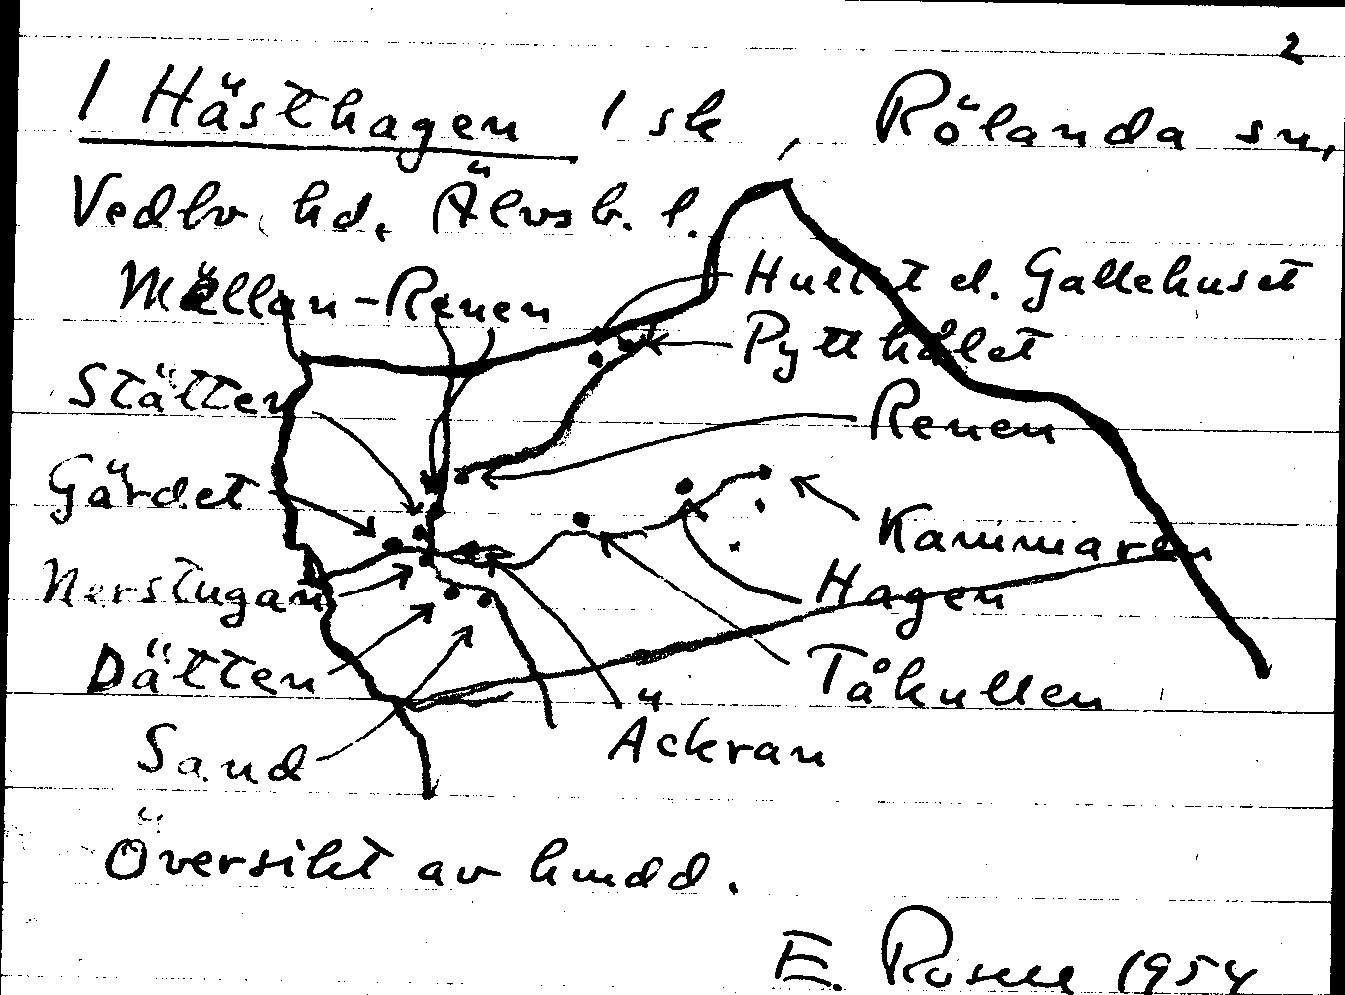 2
1 Hästhagen 1 sk, Rölanda sn,
Vedbo hd, Älvsb. l.
Mellan-Renen
Hullet el. Gallehuset
Pytthålet
Stätten
Renen
Gärdet
Kammaren
Nerstugan
Hagen
Dätten
Tåkullen
Sand
Äckran
Översikt av hmdd.
E. Rosell 1954